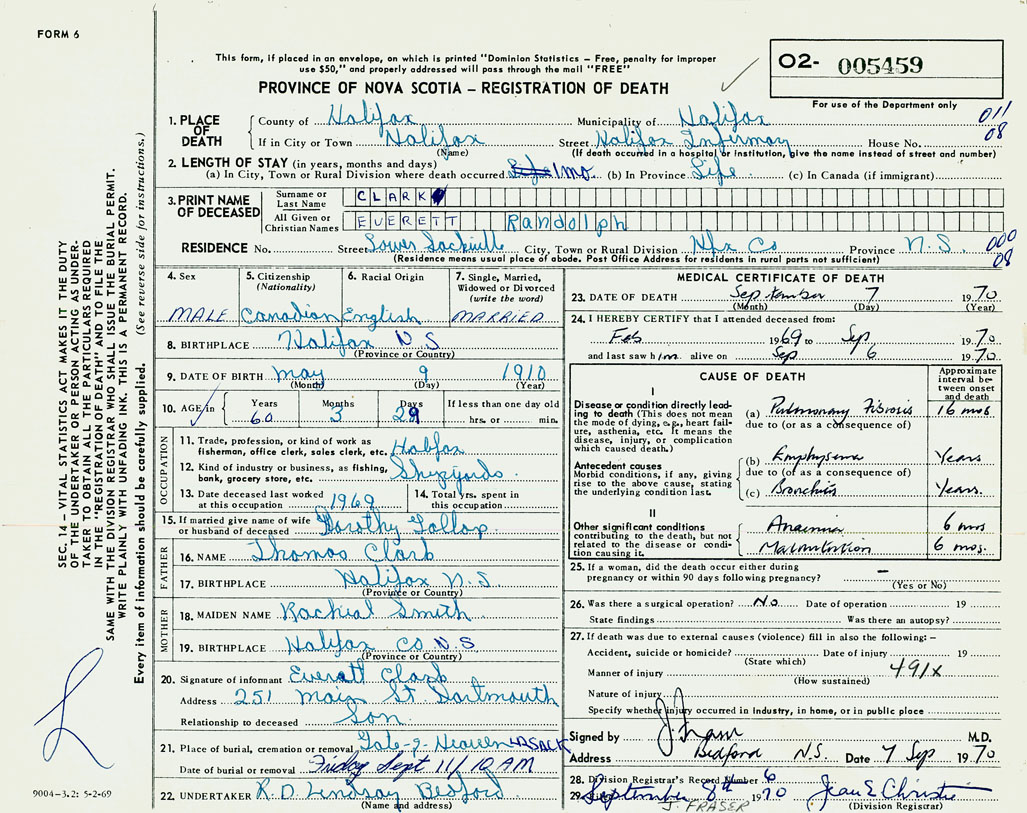 FORM 6
This form, if placed in an envelope, on which is printed "Dominion Statistics - Free, penalty for improper
use $50," and properly addressed will pass through the mail "FREE"
O2- 005459
For use of the Department only
PROVINCE OF NOVA SCOTIA - REGISTRATION OF DEATH
011
08
1. PLACE OF DEATH
County of Halifax Municipality of Halifax
If in City or Town Halifax Street Halifax Infirmary House No.
(Name) (If death occurred in a hospital or institution, give the name instead of street and number)
2. LENGTH OF STAY (in years, months and days)
(a) In City, Town or Rural Division where death occurred 1 mo. (b) In Province Life (c) In Canada (if immigrant)
3. PRINT NAME OF DECEASED
Surname or Last Name CLARK
All Given or Christian Names EVERETT Randolph
RESIDENCE No. Street Lower Sackville City, Town or Rural Division Hfx Co Province N.S. 000
08
(Residence means usual place of abode. Post Office Address for residents in rural parts not sufficient)
4. Sex
MALE
5. Citizenship
(Nationality)
Canadian
6. Racial Origin
English
7. Single, Married,
Widowed or Divorced
(write the word)
MARRIED
8. BIRTHPLACE Halifax N S
(Province or Country)
9. DATE OF BIRTH May 9 1910
(Month) (Day) (Year)
10. AGE in Years Months Days If less than one day old
60 3 29 hrs. or min.
OCCUPATION
11. Trade, profession, or kind of work as
fisherman, office clerk, sales clerk, etc. Halifax
12. Kind of industry or business, as fishing,
bank, grocery store, etc. Shipyards
13. Date deceased last worked
at this occupation 1969
14. Total yrs. spent in
this occupation
15. If married give name of wife
or husband of deceased Dorothy
FATHER
16. NAME Thomas Clark
17. BIRTHPLACE Halifax N.S
(Province or Country)
MOTHER
18. MAIDEN NAME Rachial Smith
19. BIRTHPLACE Halifax Co N.S
(Province or Country)
20. Signature of informant Everett Clark
Address 251 Main St. Dartmouth
Relationship to deceased Son
21. Place of burial, cremation or removal Gate-of-Heaven
Date of burial or removal Friday Sept 11/10 AM
22. UNDERTAKER R.D. Lindsay Bedford
(Name and address)
MEDICAL CERTIFICATE OF DEATH
23. DATE OF DEATH September 7 1970
(Month) (Day) (Year)
24. I HEREBY CERTIFY that I attended deceased from:
Feb 1969 to Sep 1970
and last saw him alive on Sep 6 1970
CAUSE OF DEATH
Approximate
interval be-
tween onset
and death
I
Disease or condition directly lead-
ing to death (This does not mean
the mode of dying, e.g., heart fail-
ure, asthenia, etc. It means the
disease, injury, or complication
which caused death.)
(a) Pulmonary Fibrosis 16 mos
due to (or as a consequence of)
Antecedent causes
Morbid conditions, if any, giving
rise to the above cause, stating
the underlying condition last.
(b) Emphysema Years
due to (or as a consequence of)
(c) Bronchitis Years.
II
Other significant conditions
contributing to the death, but not
related to the disease or condi-
tion causing it.
Anaemia 6 mos
Malnutrition 6 mos.
25. If a woman, did the death occur either during
pregnancy or within 90 days following pregnancy? -
(Yes or No)
26. Was there a surgical operation? No Date of operation 19
State findings Was there an autopsy?
27. If death was due to external causes (violence) fill in also the following: -
Accident, suicide or homicide? Date of injury 19
(State which)
Manner of injury 491X
(How sustained)
Nature of injury
Specify whether injury occurred in industry, in home, or in public place
Signed by M.D.
Address Bedford N.S. Date 7 Sep 1970
28. Division Registrar's Record Number 6
29. September 8th 1970 Jean E Christie
J. FRASER (Division Registrar)
SEC. 14 - VITAL STATISTICS ACT MAKES IT THE DUTY
OF THE UNDERTAKER OR PERSON ACTING AS UNDER-
TAKER TO OBTAIN ALL THE PARTICULARS REQUIRED
IN THE "REGISTRATION OF DEATH" AND TO FILE THE
SAME WITH THE DIVISION REGISTRAR WHO SHALL ISSUE THE BURIAL PERMIT.
WRITE PLAINLY WITH UNFADING INK. THIS IS A PERMANENT RECORD.
Every item of information should be carefully supplied. (See reverse side for instructions.)
9004-3.2: 5-2-69